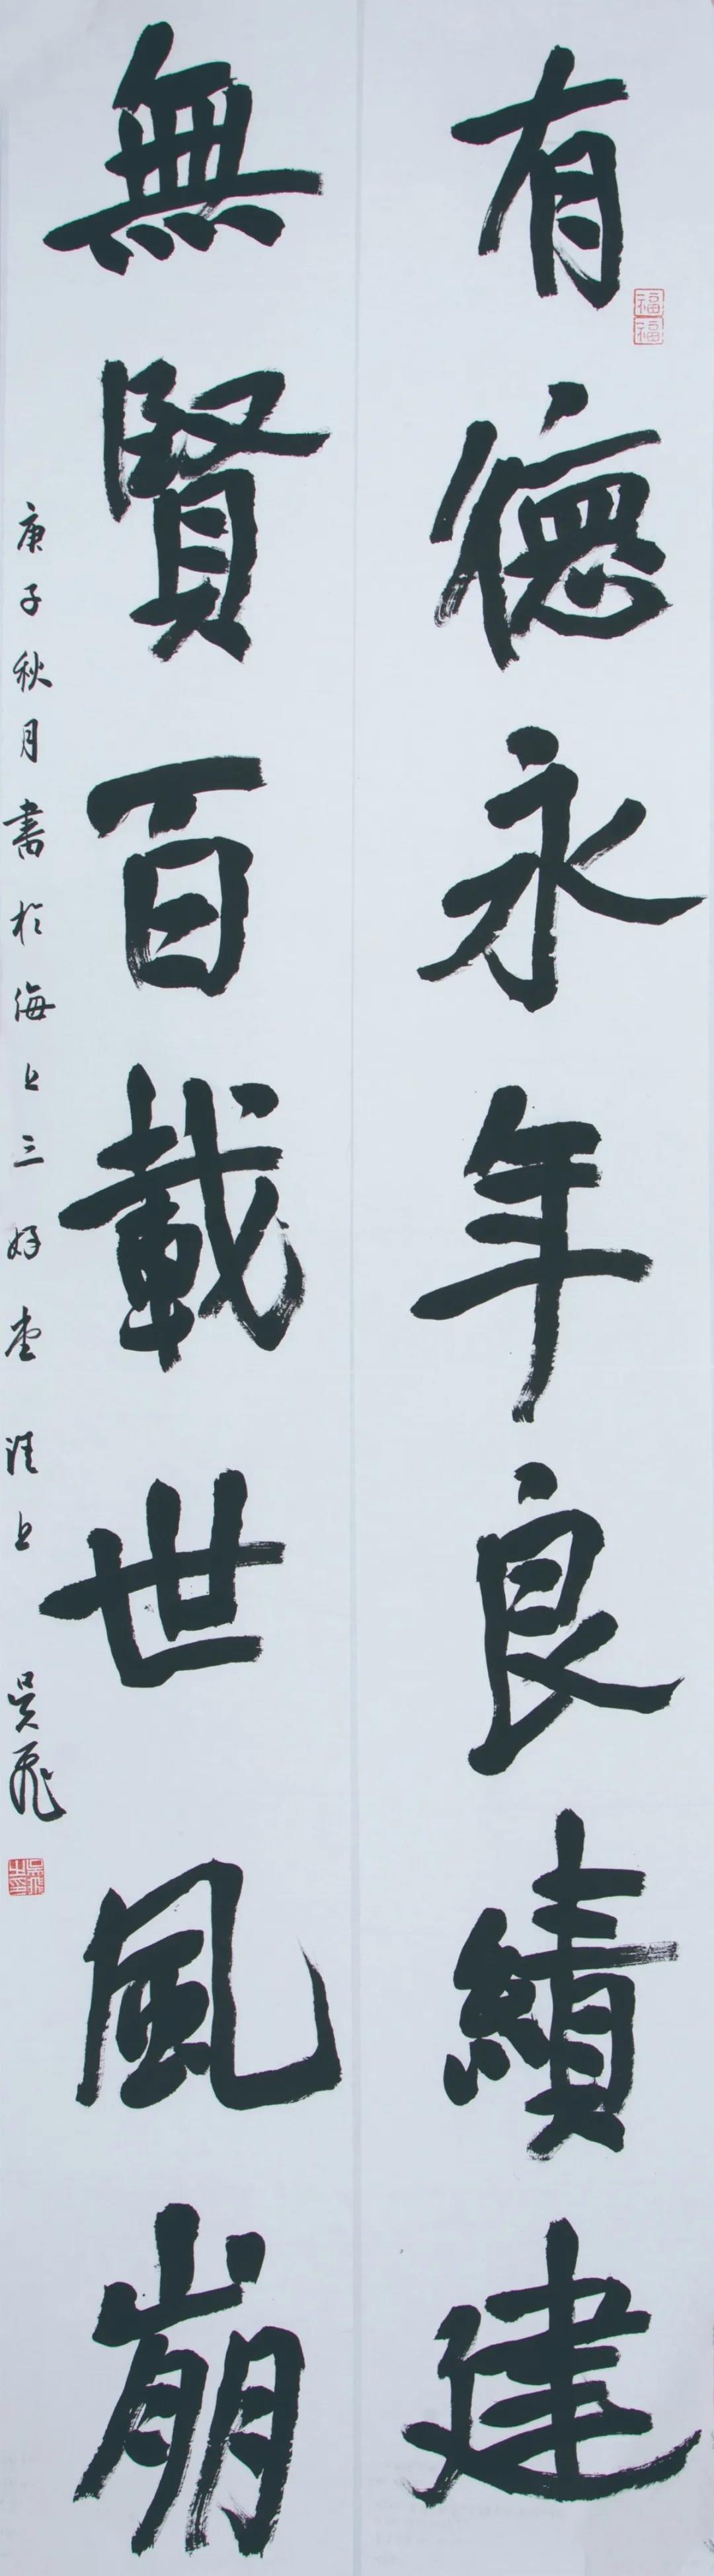 有德永年良績建
福
福
無賢百載世風崩
庚子秋月書於海上三好堂 淮上 吳飛
吳飛之印